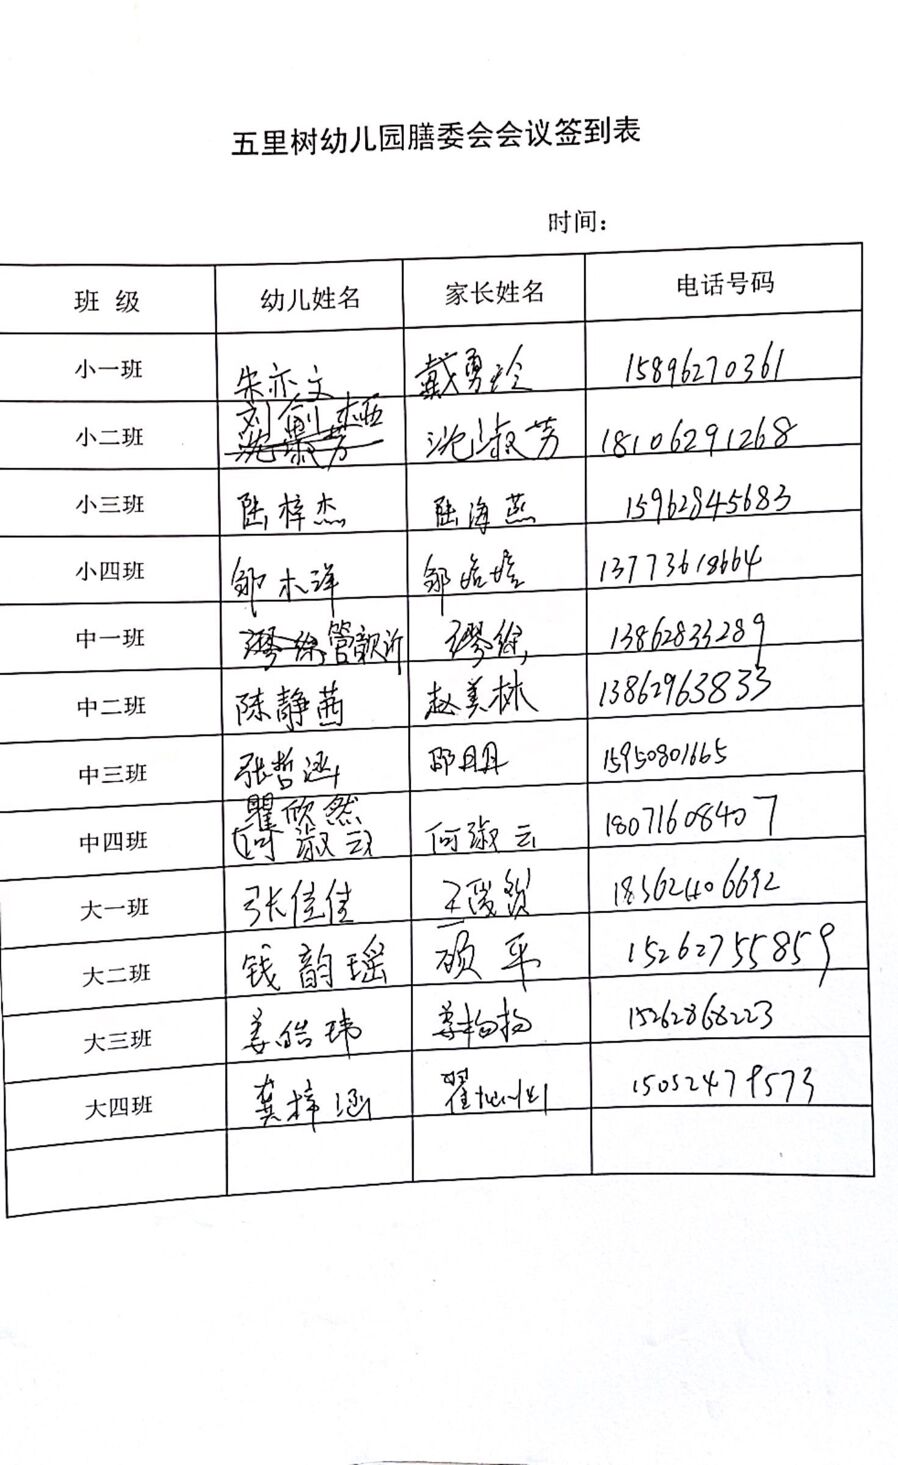 五里树幼儿园膳委会会议签到表
时间：
班 级 幼儿姓名 家长姓名 电话号码
小一班 朱亦文 戴勇玲 15896270361
小二班 刘 沈淑芳 沈淑芳 18106291268
小三班 陆梓杰 陆海燕 15962845683
小四班 邹木洋 邹 13773618664
中一班 缪徐 管歆沂 缪徐 13862833289
中二班 陈静茜 赵美林 13862963833
中三班 张哲涵 邵明明 15950801665
中四班 瞿欣然 何淑云 何淑云 18071608407
大一班 张佳佳 王 18362406692
大二班 钱韵瑶 顾平 15262755859
大三班 姜皓玮 15262868223
大四班 龚梓涵 翟 15052479573